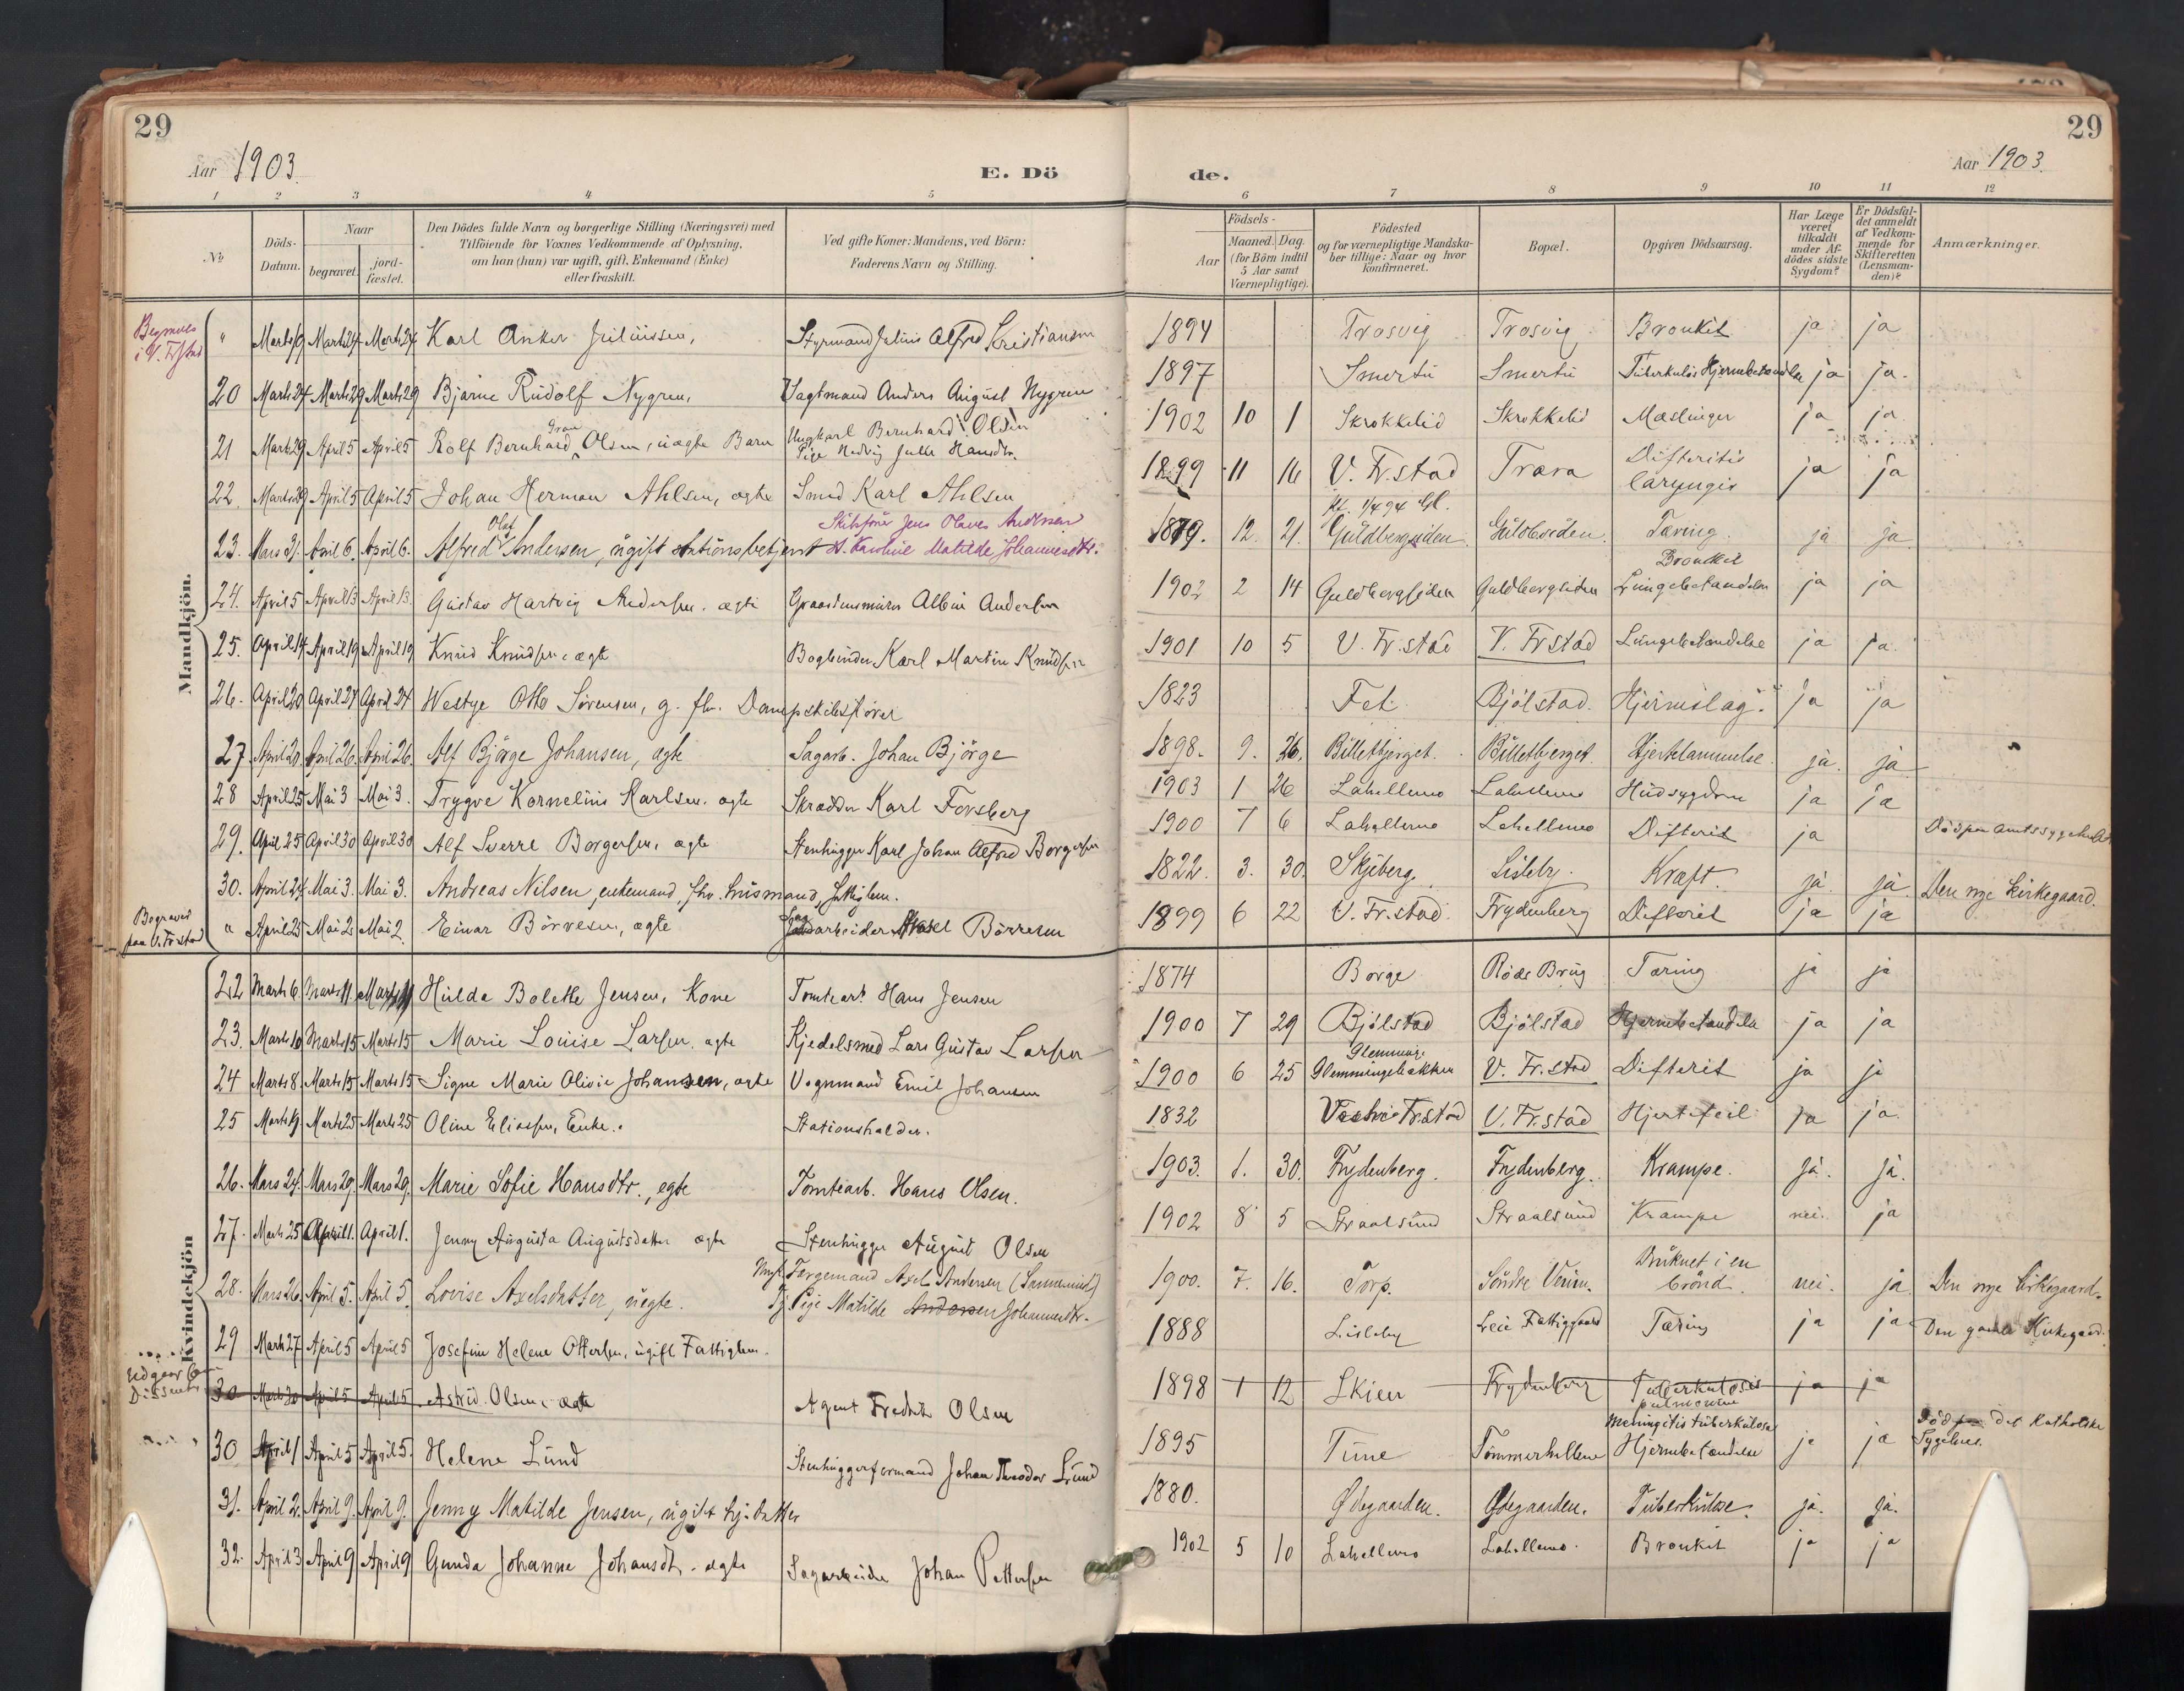 29
29
Aar 1903.
E. Dö
de.
Aar 1903.
1 2 3 4 5 6 7 8 9 10 11 12
No
Döds-Datum.
Naar
begravet.
jord-fæstet.
Den Dödes fulde Navn og borgerlige Stilling (Næringsvei) med
Tilföiende for Voxnes Vedkommende af Oplysning,
om han (hun) var ugift, gift, Enkemand (Enke)
eller fraskilt.
Ved gifte Koner: Mandens, ved Börn:
Faderens Navn og Stilling.
Födsels-
Aar
Maaned. Dag.
(for Börn indtil
5 Aar samt
Værnepligtige).
Födested
og for værnepligtige Mandska-
ber tillige: Naar og hvor
konfirmeret.
Bopæl.
Opgiven Dödsaarsag.
Har Læge
været
tilkaldt
under Af-
dödes sidste
Sygdom?
Er Dödsfal-
det anmeldt
af Vedkom-
mende for
Skifteretten
(Lensman-
den)?
Anmærkninger.
Mandkjön.
Begraves i V. Frstad " Marts 19 Marts 24 Marts 24 Karl Anker Juliussen, Styrmand Julius Alfred Kristiansen 1894 Trosvig Trosvig Bronkit ja ja
20 Marts 24 Marts 29 Marts 29 Bjarne Rudolf Nygren, Sagtmand Anders August Nygren 1897 Smertu Smertu Tuberkuløs Hjernebetændelse ja ja.
21 Marts 29 April 5 April 5 Rolf Bernhard Olsen, uægte Barn Ungkarl Bernhard Olsen
Pige Hedvig Julie Hansdtr. 1902 10 1 Skrokkelid Skrokkelid Mæslinger ja ja
22. Marts 29 April 5 April 5 Johan Herman Ahlsen, ægte Smed Karl Ahlsen 1899 11 16 V. Fr.stad Trara Difteritis
laryngis ja ja
23. Mars 31. April 6. April 6. Alfred Olaf Andersen, ugift stationsbetjent Skibsfører Jens Olaves Andersen
H. Karoline Matilde Johannesdtr. 1879. 12. 21. Guldbergsiden. Guldbersiden. Tæring. ja ja
24. April 5 April 13 April 13. Gustav Hartvig Andersen. ægte Graastensmurer Albin Andersen 1902 2 14 Guldbergsiden Guldbergsiden Bronkit
Lungebetændelse ja ja
25. April 14 April 19 April 19 Knud Knudsen, ægte Bogbinder Karl Martin Knudsen 1901 10 5 V. Fr.stad V. Frstad Lungebetændelse ja ja.
26. April 20 April 27 April 27 Westye Otto Sørensen, g. fhv. Dampskibsfører 1823 Fet Bjölstad. Hjerneslag. ja ja
27. April 20. April 26. April 26. Alf Bjørge Johansen, ægte Sagarb. Johan Bjørge 1898. 9. 26. Billetbjerget. Billetbjerget. Hjertelammelse. ja. ja.
28 April 25 Mai 3 Mai 3. Trygve Kornelius Karlsen. ægte Skrædder Karl Forsberg 1903 1 26 Lahellemo Lahellemo Hudsygdom ja ja
29. April 25 April 30 April 30 Alf Sverre Borgersen, ægte Stenhugger Karl Johan Alfred Borgersen 1900 7 6 Lahellemo Lahellemo Difterit ja Død paa Amtssygehuset
30. April 27. Mai 3. Mai 3. Andreas Nilsen, enkemand, fhv. husmand, 1822. 3. 30. Skjeberg. Lisleby. Kræft. ja. ja. Den nye kirkegaard.
Begraves paa V. Frstad " April 25 Mai 2 Mai 2. Einar Börresen, ægte Sagarbeider Aksel Börresen 1899 6 22 V. Fr.stad Frydenberg Difterit ja ja
Kvindekjön
22 Marts 6. Marts 11. Marts 11 Hulda Bolette Jensen, Kone Tomtearb. Hans Jensen 1874 Borge Røde Brug Tæring ja ja
23. Marts 10 Marts 15 Marts 15 Marie Louise Larsen, ægte Kjedelsmed Lars Gustav Larsen 1900 7 29 Bjölstad Bjölstad Hjernebetændelse ja ja
24 Marts 8. Marts 15 Marts 15 Signe Marie Olivie Johansen, ægte Vognmand Emil Johansen 1900 6 25 Glemminge
Glemmingebakken V. Fr.stad Difterit ja ja
25 Marts 19. Marts 25 Marts 25 Oline Eliassen, Enke. Stationsholder. 1832 Vestre Fr.stad V. Fr.stad Hjertefeil ja ja.
26. Mars 24. Mars 29. Mars 29. Marie Sofie Hansdtr., egte Tomtearb. Hans Olsen. 1903. 1. 30. Frydenberg. Frydenberg. Krampe. ja. ja.
27. Marts 25 April 1. April 1. Jenny Augusta Augustsdatter ægte Stenhugger August Olsen 1902 8 5 Straalsund Straalsund Krampe nei. ja
28. Mars 26. April 5. April 5. Lovise Axelsdatter, uegte. Fergemand Axel Andersen
Pige Matilde Andersen Johannesdtr. 1900. 7. 16. Torp. Søndre Druknet i en
brønd. nei. ja Den nye kirkegaard.
29 Marts 27 April 5 April 5 Josefine Helene Ottersen, ugift Fattiglem. 1888 Lisleby Leie Fattiggaard Tæring ja ja Den gamle Kirkegaard.
Udgaar
Dissenter 30 Marts 30 April 5 April 5 Astrid Olsen, ægte Agent Fredrik Olsen 1898 1 12 Skien Frydenberg Tuberkulosis
pulmonum ja ja
30 April 1 April 5 April 5. Helene Lund Stenhuggerformand Johan Theodor Lund 1895 Tune Tømmerhellene Meningitis tuberkulosa
Hjernebetændelse ja ja Død paa det Katholske
Sygehus.
31. April 2. April 9. April 9. Jenny Matilde Jensen, ugift 1880. Ødegaarden. Ødegaarden. Tuberkulose. ja. ja.
32. April 3 April 9 April 9 Gunda Johanne Johansdtr. ægte Sagarbeider Johan Pettersen 1902 5 10 Lahellemo Lahellemo. Bronkit ja ja